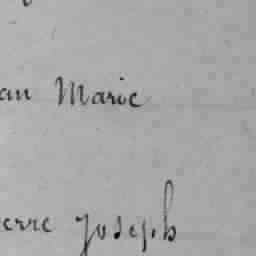 an Marie
erre Joseph